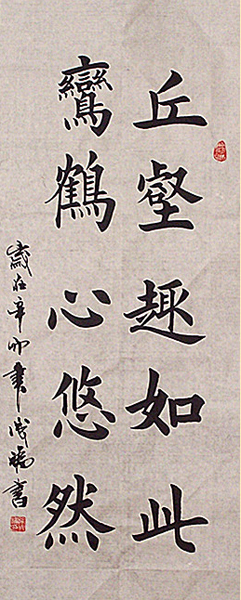 丘壑趣如此
鸞鶴心悠然
歲在辛卯
書